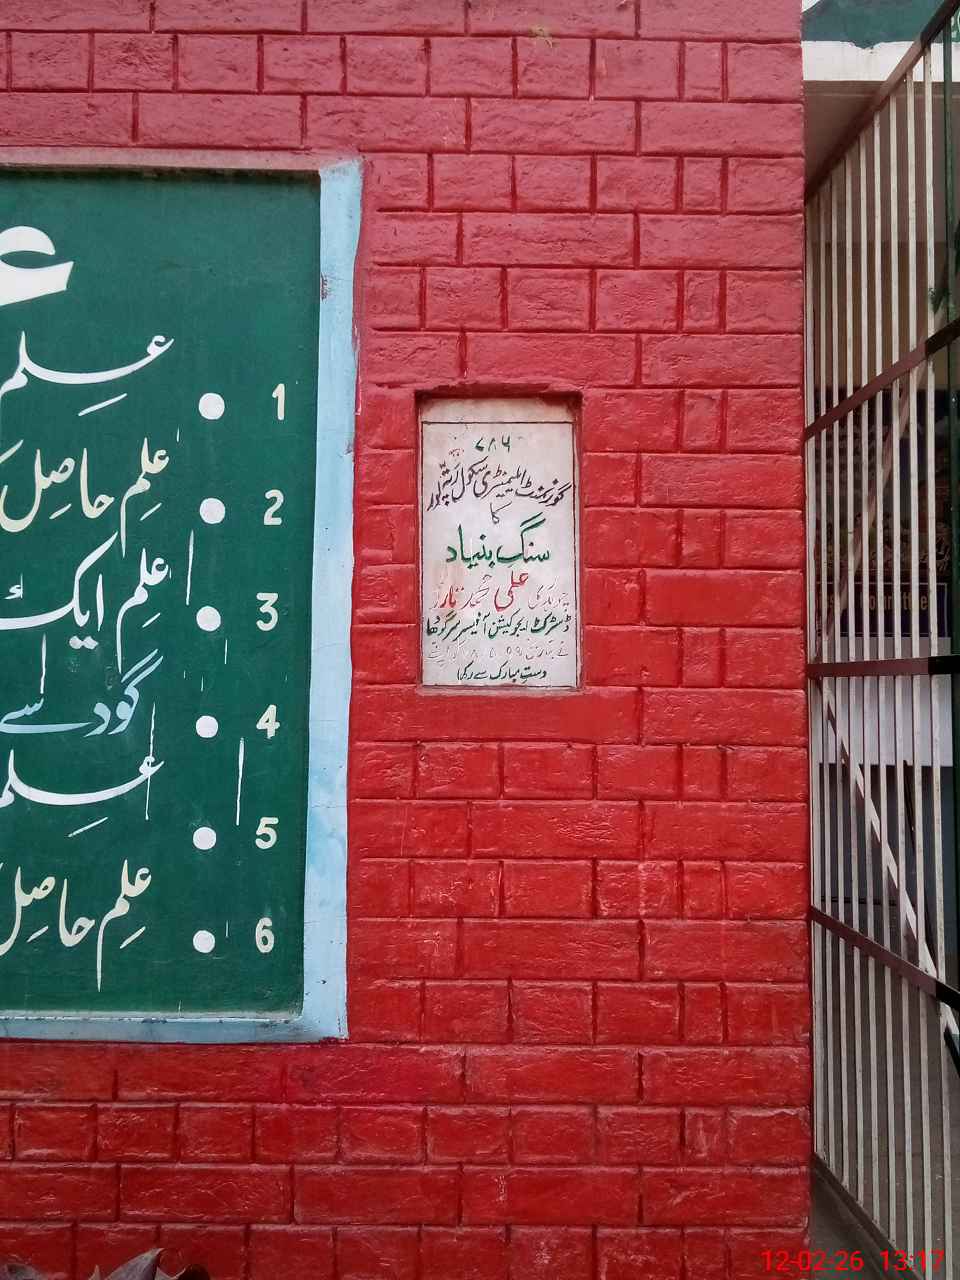 ع
علم
علم حاصل
علم ایک
گود سے
علم
علم حاصل
1
2
3
4
5
6
۷۸۶
گورنمنٹ ایلیمنٹری سکول
کا
سنگ بنیاد
چوہدری علی محمد
ڈسٹرکٹ ایجوکیشن آفیسر سرگودھا
نے بتاریخ
دست مبارک سے رکھا
12-02-26 13:17